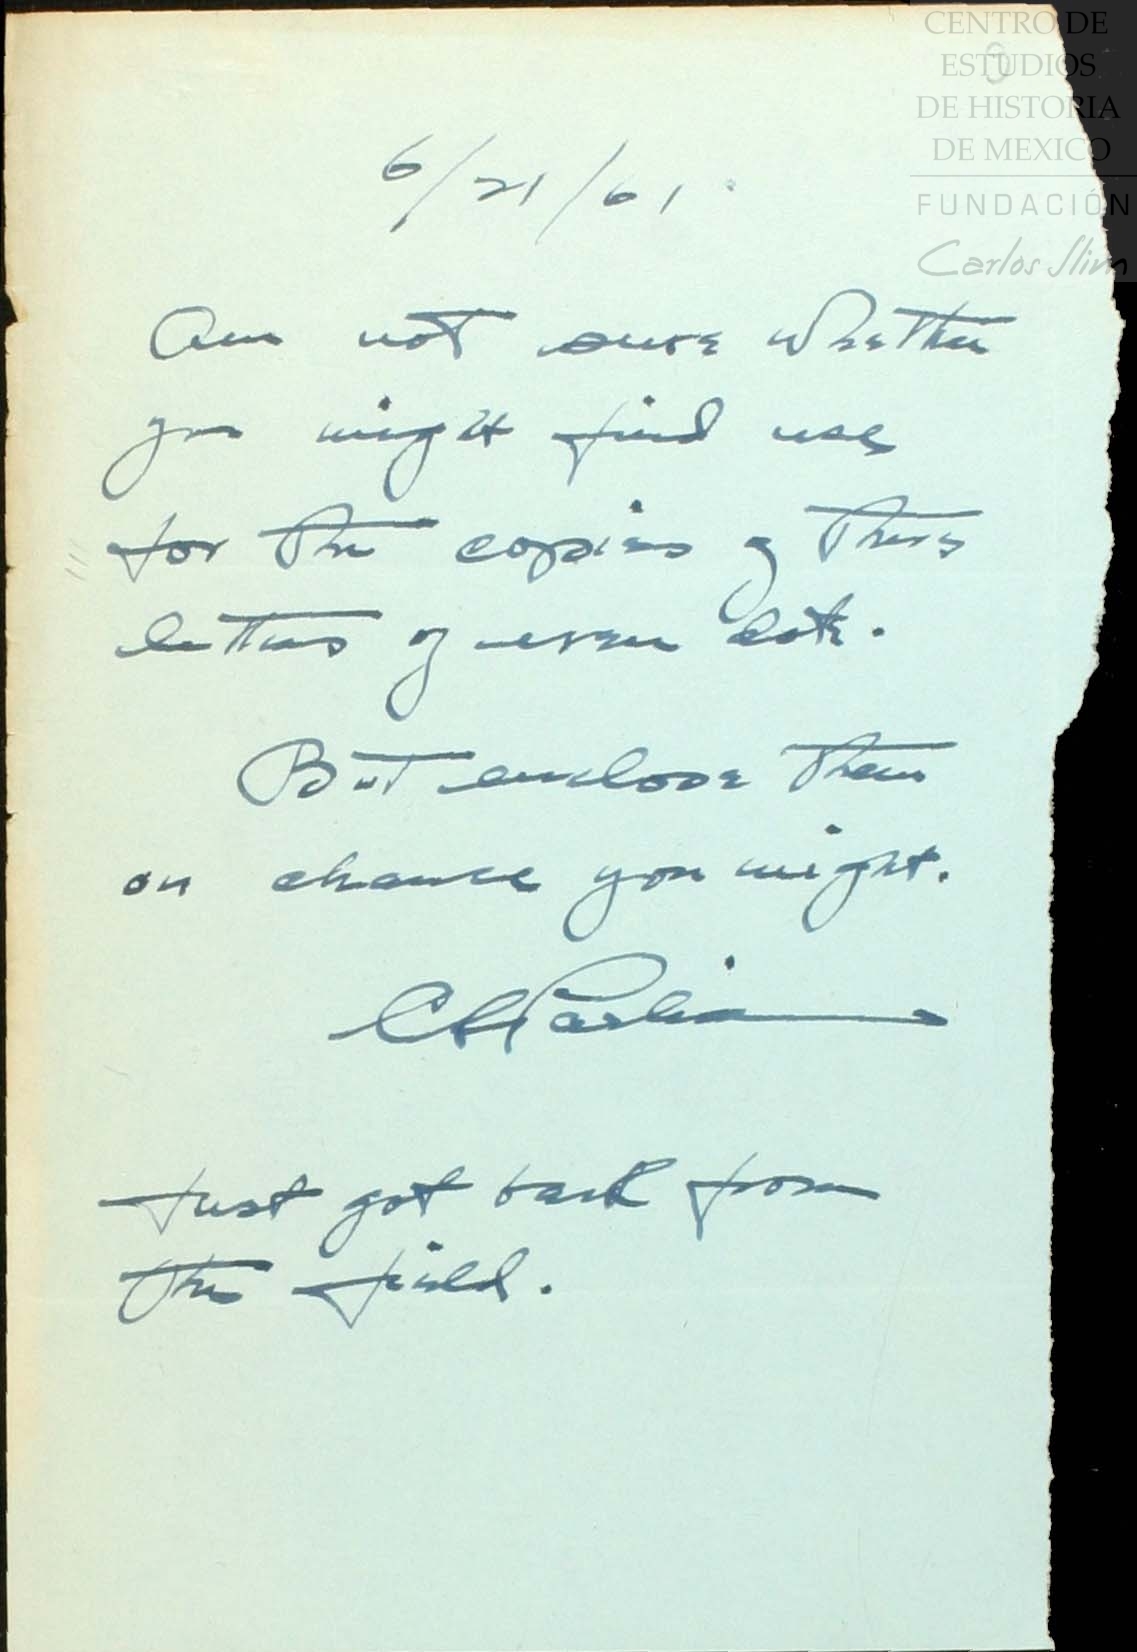 CENTRO DE
ESTUDIOS
DE HISTORIA
DE MEXICO
FUNDACIÓN
Carlos Slim
6/21/61.
Am not sure whether
you might find use
for the copies of these
letters of even date.
But enclose them
on chance you might.
Just got back from
the field.